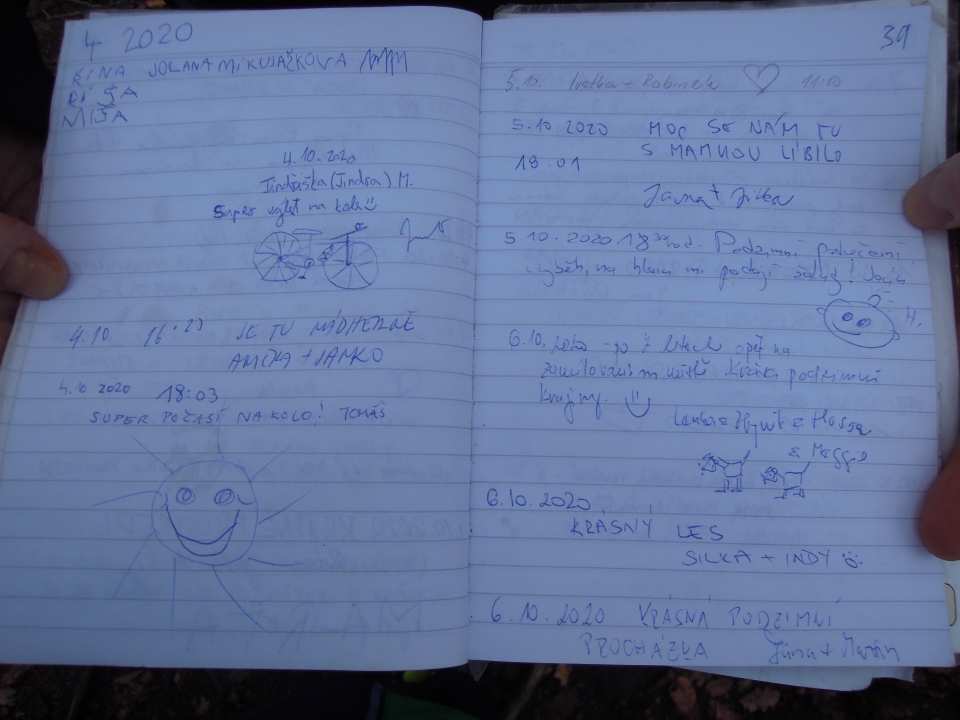 4 2020
JOLANA MIKULÁŽKOVA
RÍŠA
MÍŠA
4.10.2020
Jindřiška (Jindra) M.
Super výlet na kole
4.10 16:23 JE TU NÁDHERNĚ
+ JANKO
4.10 2020 18:03
SUPER POČASÍ NA KOLO! TOMÁŠ
39
5.10. Ivetka + Robinek 11:10
5.10 2020 MOC SE NÁM TU
S MAMKOU LÍBILO
18.01
Jana + Jitka
5 10.2020 18 Podzimní
výběh, na hlavu mi padají žaludy!
H.
6.10.2020 - po letech opět na
podzimní
krajiny.
Lenka + Hynek +
& Meggie
6.10.2020
KRÁSNÝ LES
SILKA + INDY
6.10.2020 KRÁSNÁ PODZIMNÍ
PROCHÁZKA Jana + Martin